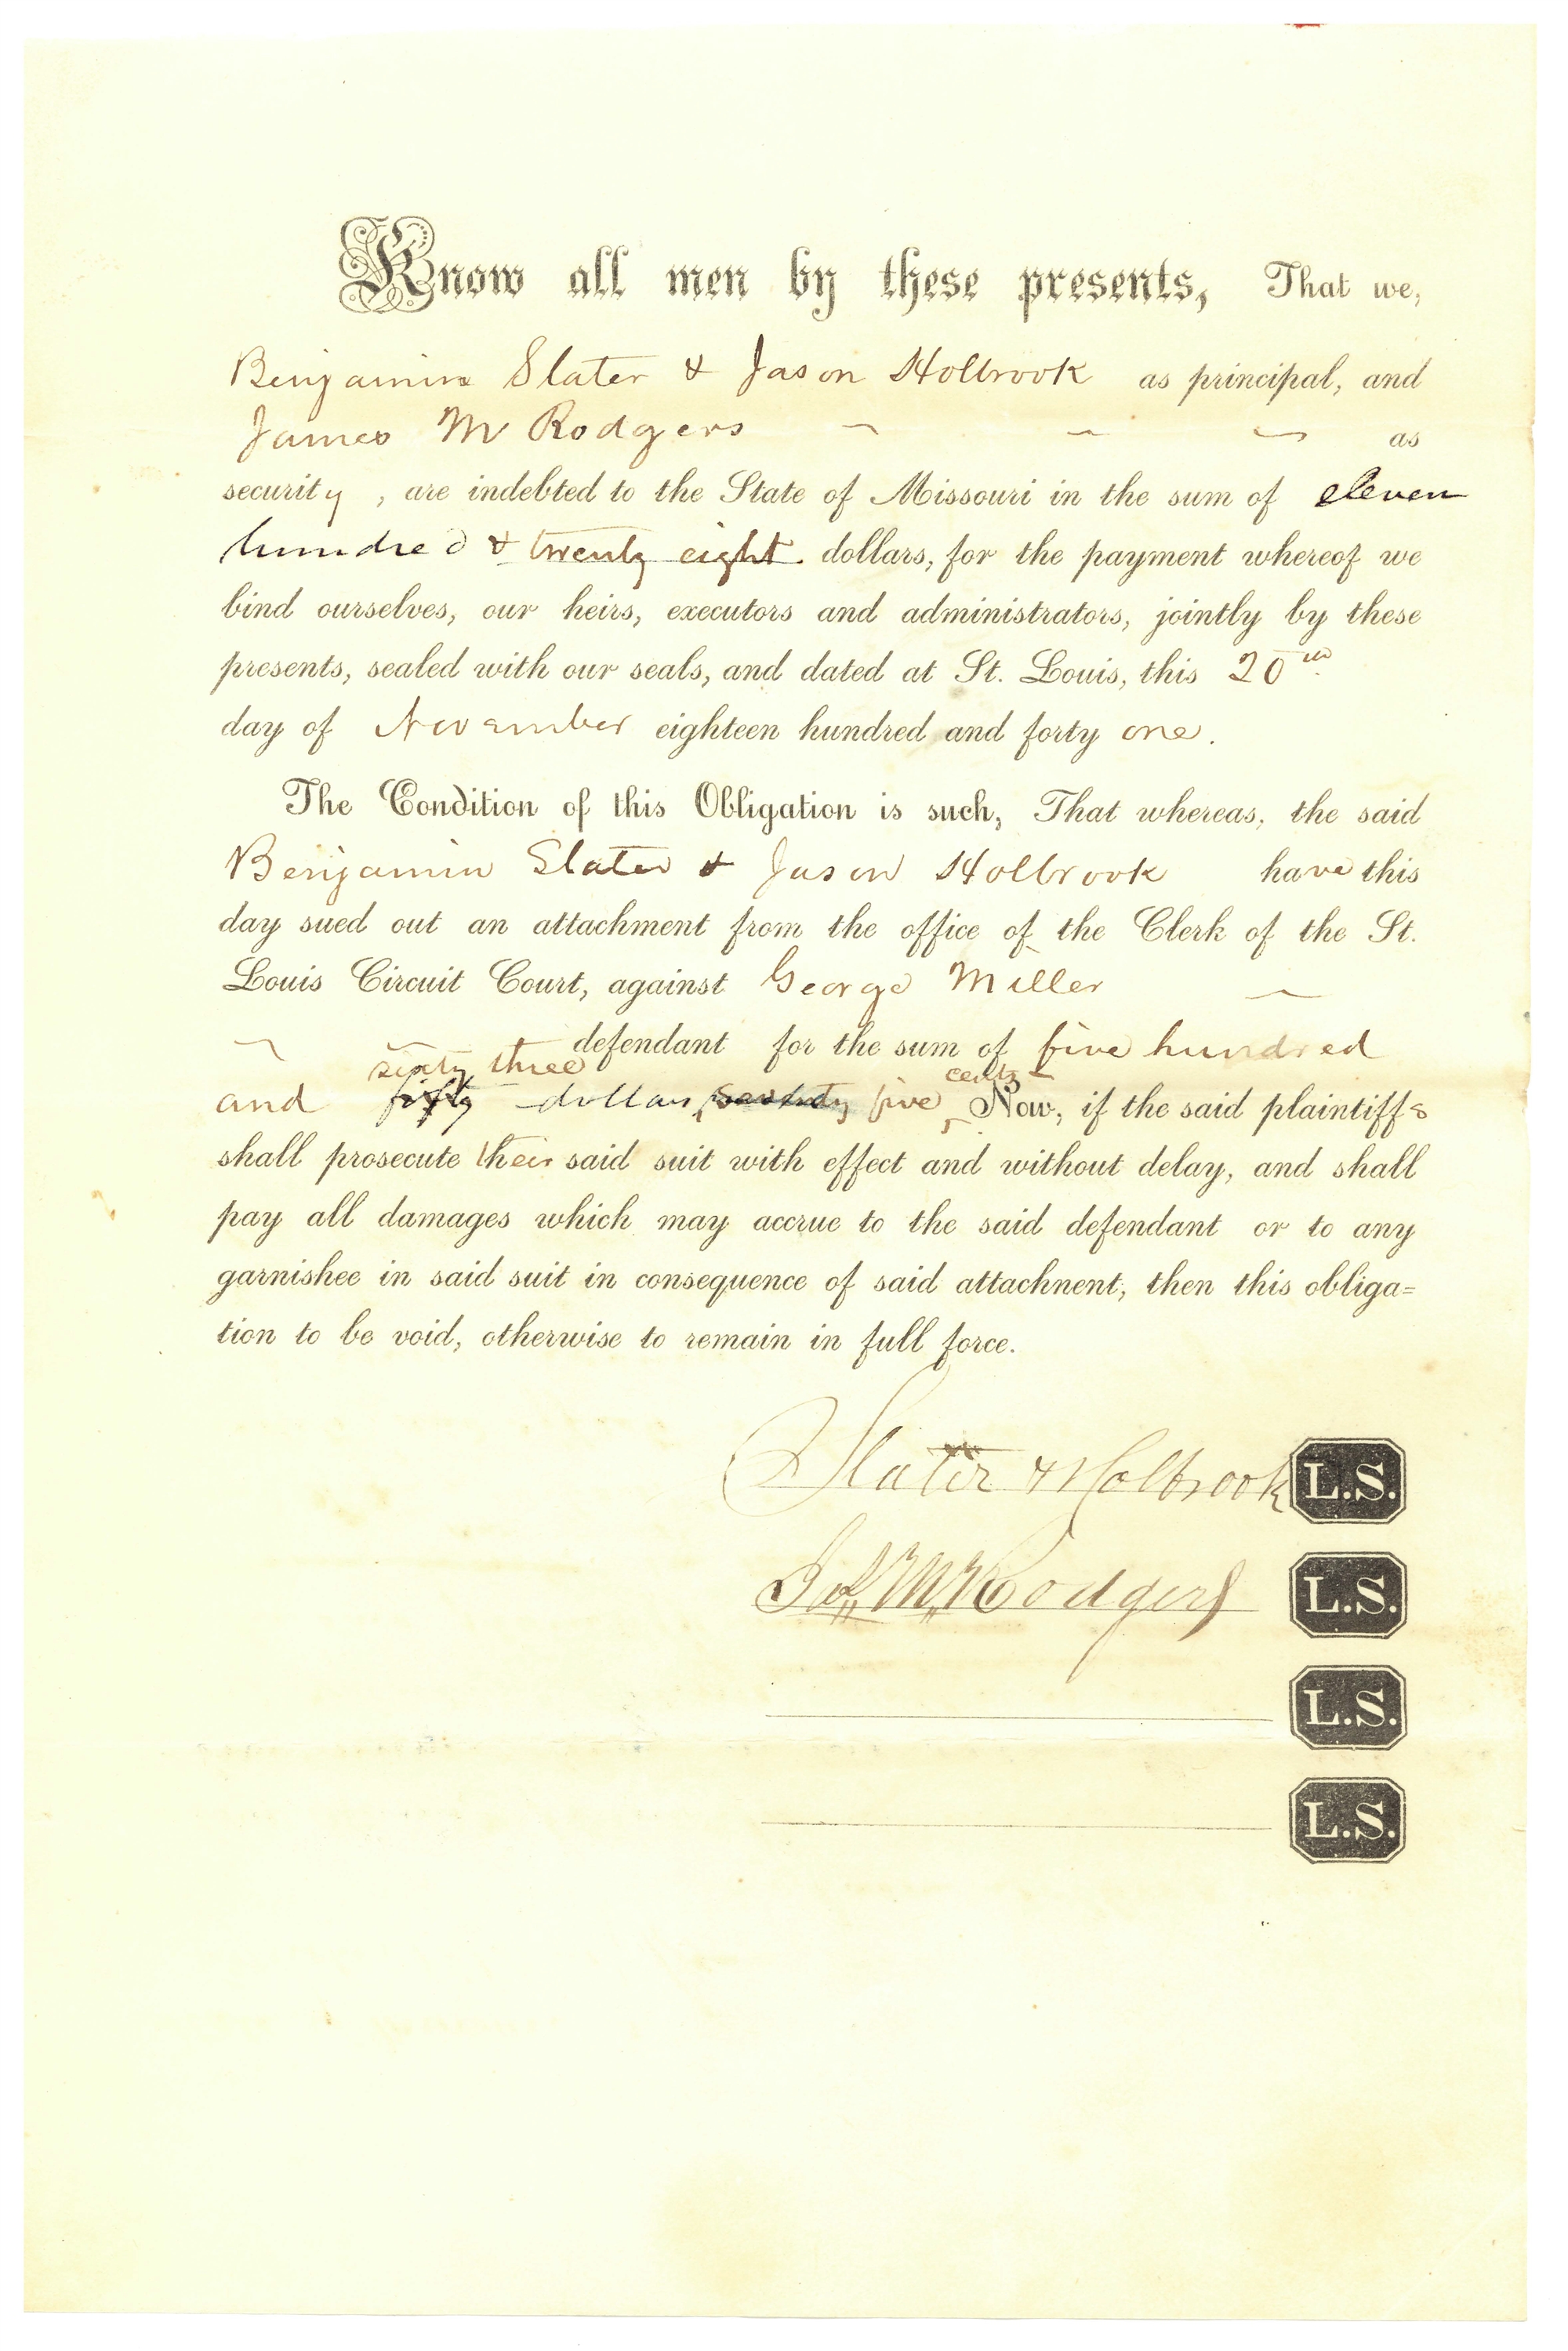 Know all men by these presents, That we,
Benjamin Slater & Jason Holbrook as principal, and
James M Rodgers ~ ~ ~ as
security , are indebted to the State of Missouri in the sum of eleven
hundred & twenty eight dollars, for the payment whereof we
bind ourselves, our heirs, executors and administrators, jointly by these
presents, sealed with our seals, and dated at St. Louis, this 20th
day of November eighteen hundred and forty one.
The Condition of this Obligation is such, That whereas, the said
Benjamin Slater & Jason Holbrook have this
day sued out an attachment from the office of the Clerk of the St.
Louis Circuit Court, against George Miller ~
~ ~ defendant for the sum of five hundred
sixty three cents
and fifty dollars seventy five Now, if the said plaintiffs
shall prosecute their said suit with effect and without delay, and shall
pay all damages which may accrue to the said defendant or to any
garnishee in said suit in consequence of said attachnent, then this obliga=
tion to be void, otherwise to remain in full force.
Slater & Holbrook L.S.
Jas M Rodgers L.S.
L.S.
L.S.